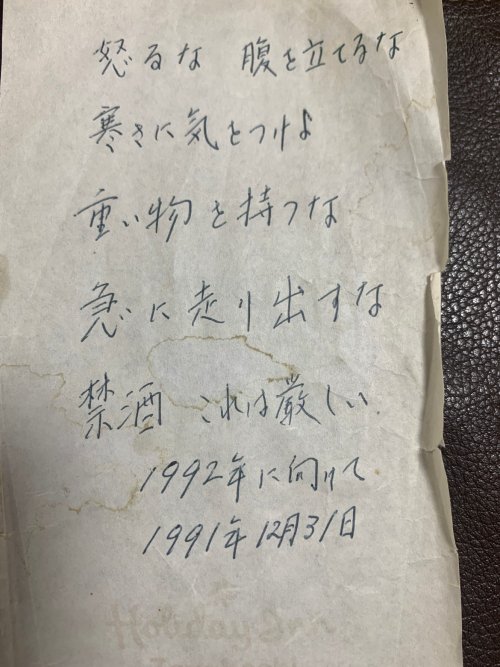 怒るな 腹を立てるな
寒さに気をつけよ
重い物を持つな
急に走り出すな
禁酒 これは厳しい.
1992年に向けて
1991年12月31日
Holiday Inn